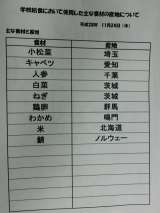 学校給食において使用した主な食材の産地について
平成28年 11月24日（木）
主な食材と産地
食材 産地
小松菜 埼玉
キャベツ 愛知
人参 千葉
白菜 茨城
ねぎ 茨城
鶏卵 群馬
わかめ 鳴門
米 北海道
鯖 ノルウェー